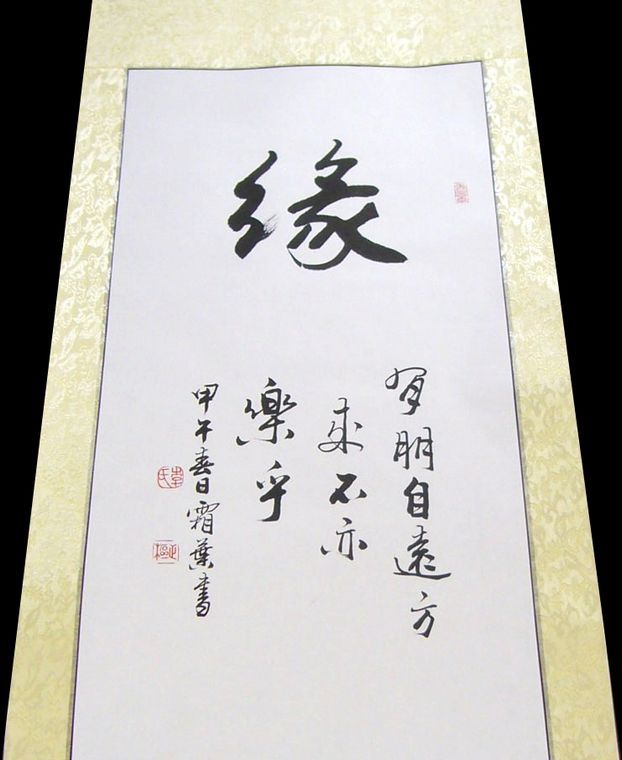 缘
有朋自遠方
来不亦
樂乎
甲午春日霜葉書
李氏